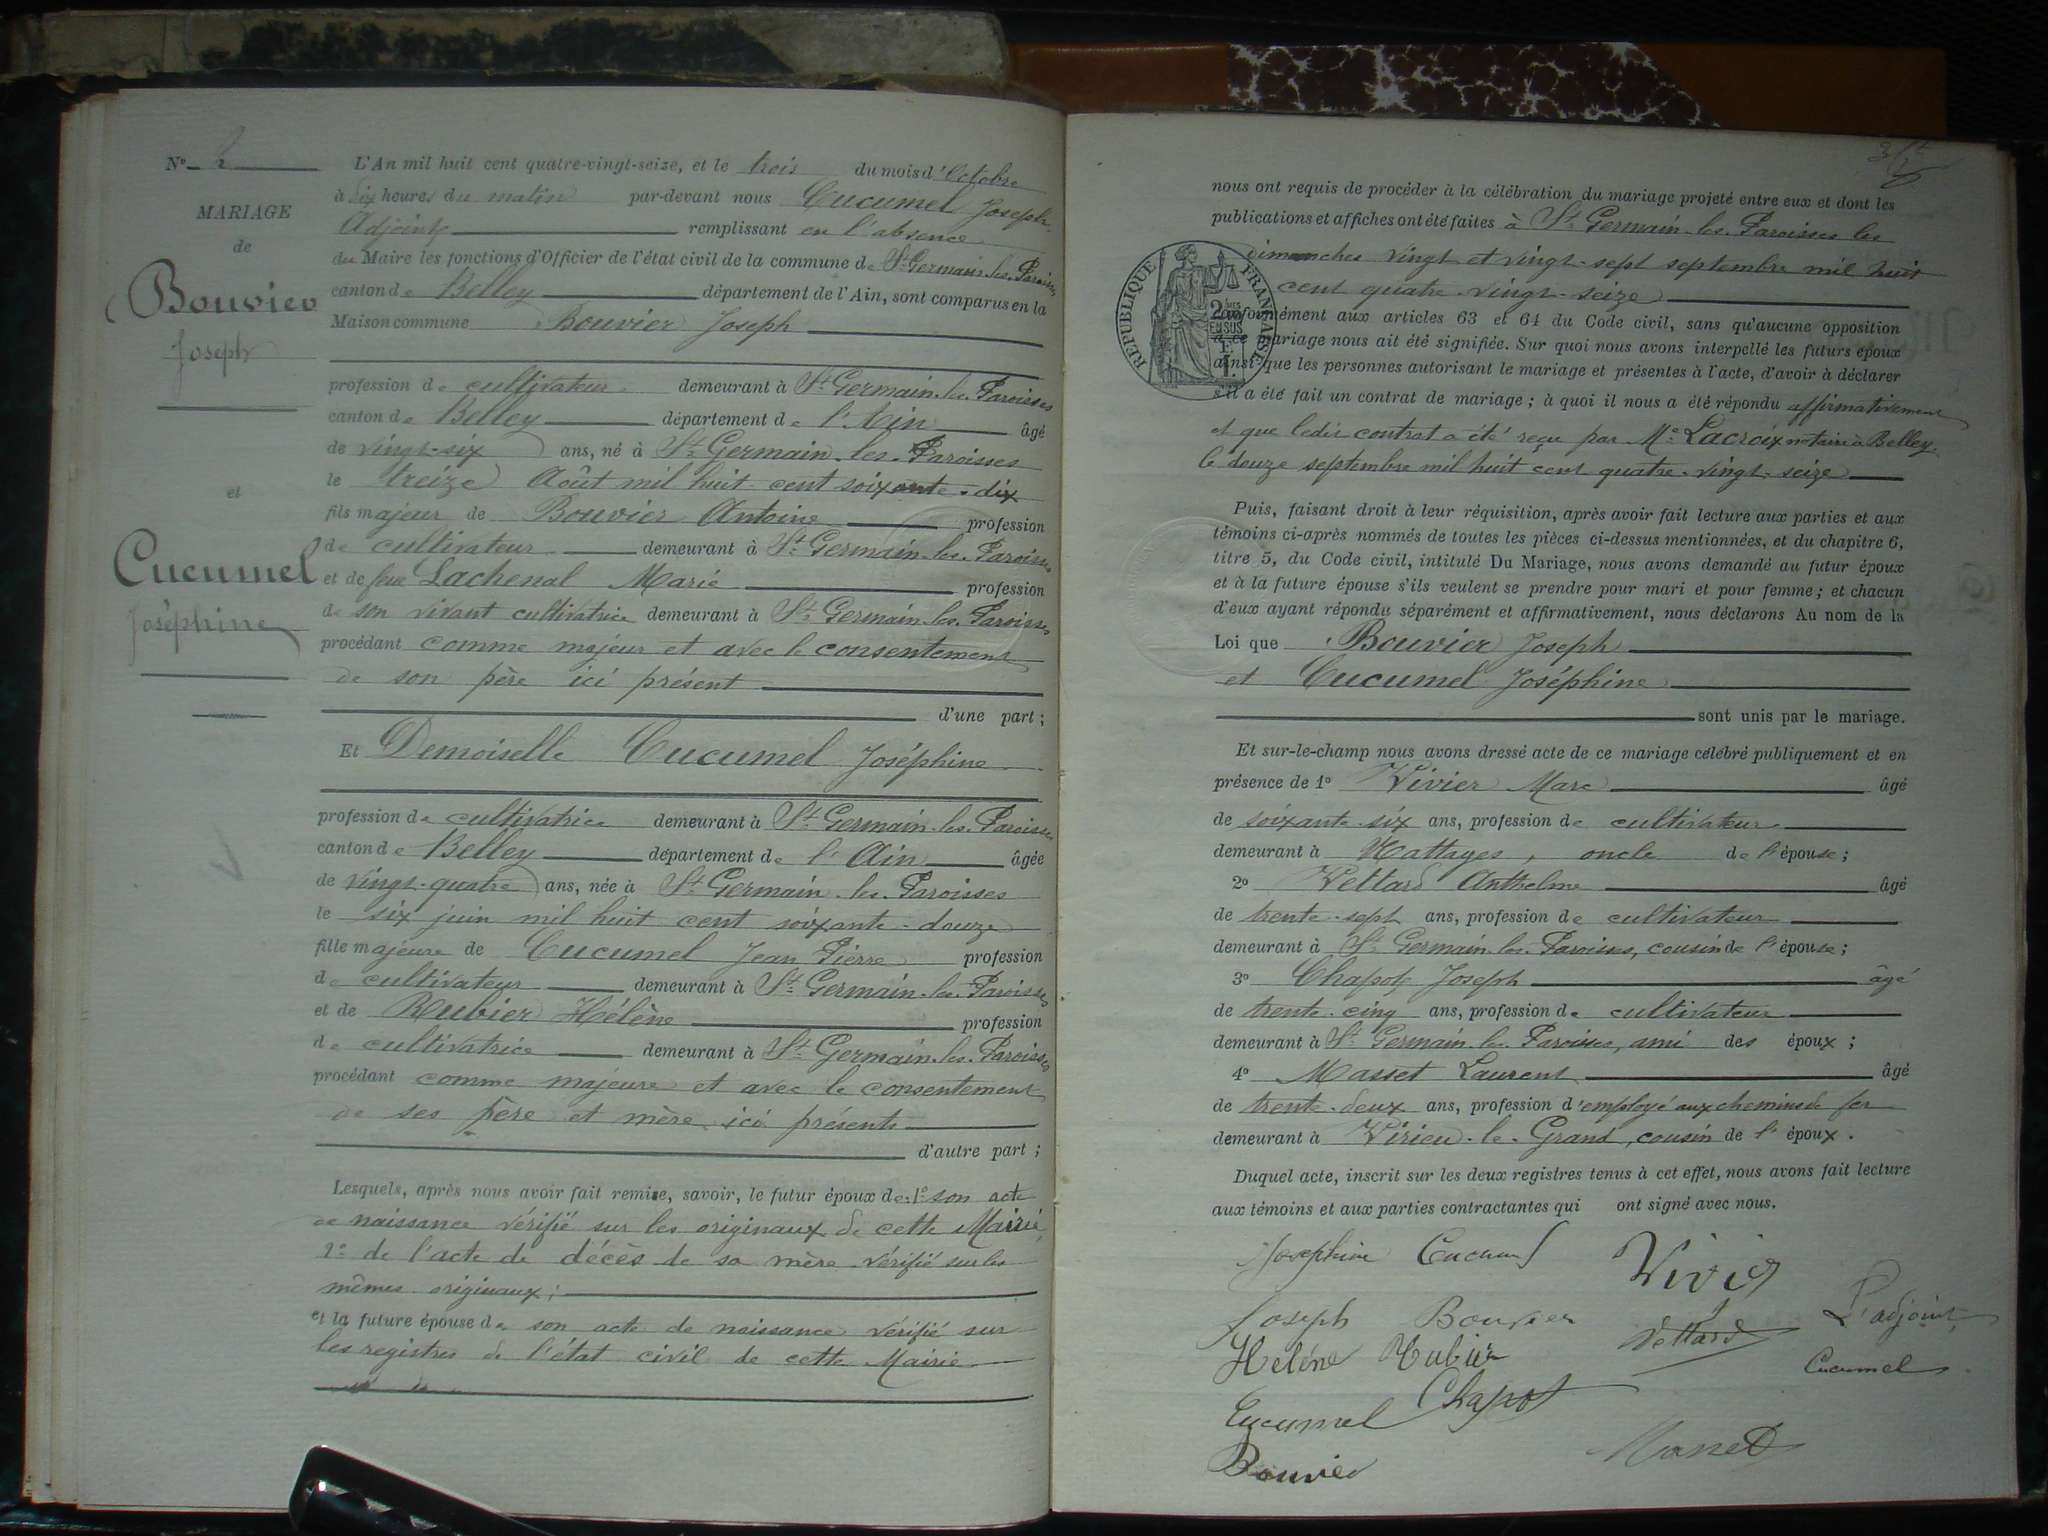 N° 2
MARIAGE
de
Bouvier
Joseph
et
Cucumel
Joséphine
L'An mil huit cent quatre-vingt-seize, et le trois du mois d'Octobre
à dix heures du matin par-devant nous Cucumel Joseph
Adjoint remplissant en l'absence
du Maire les fonctions d'Officier de l'état civil de la commune de St Germain-les-Paroisses
canton de Belley département de l'Ain, sont comparus en la
Maison commune Bouvier Joseph
profession de cultivateur demeurant à St Germain-les-Paroisses
canton de Belley département de l'Ain âgé
de vingt-six ans, né à St Germain-les-Paroisses
le treize Août mil huit cent soixante-dix
fils majeur de Bouvier Antoine profession
de cultivateur demeurant à St Germain-les-Paroisses
et de feue Lachenal Marie profession
de son vivant cultivatrice demeurant à St Germain-les-Paroisses
procédant comme majeur et avec le consentement
de son père ici présent
d'une part ;
Et Demoiselle Cucumel Joséphine
profession de cultivatrice demeurant à St Germain-les-Paroisses
canton de Belley département de l'Ain âgée
de vingt-quatre ans, née à St Germain-les-Paroisses
le six juin mil huit cent soixante-douze
fille majeure de Cucumel Jean Pierre profession
de cultivateur demeurant à St Germain-les-Paroisses
et de Rubier Hélène profession
de cultivatrice demeurant à St Germain-les-Paroisses
procédant comme majeure et avec le consentement
de ses père et mère ici présents
d'autre part ;
Lesquels, après nous avoir fait remise, savoir, le futur époux de : 1° son acte
de naissance vérifié sur les originaux de cette Mairie,
2° de l'acte de décès de sa mère vérifié sur les
mêmes originaux ;
et la future épouse de son acte de naissance vérifié sur
les registres de l'état civil de cette Mairie
nous ont requis de procéder à la célébration du mariage projeté entre eux et dont les
publications et affiches ont été faites à St Germain-les-Paroisses les
dimanches vingt et vingt-sept septembre mil huit
cent quatre-vingt-seize
RÉPUBLIQUE FRANÇAISE
2 MES EN SUS
conformément aux articles 63 et 64 du Code civil, sans qu'aucune opposition
à ce mariage nous ait été signifiée. Sur quoi nous avons interpellé les futurs époux
ainsi que les personnes autorisant le mariage et présentes à l'acte, d'avoir à déclarer
s'il a été fait un contrat de mariage ; à quoi il nous a été répondu affirmativement
et que ledit contrat a été reçu par Me Lacroix notaire à Belley
le douze septembre mil huit cent quatre-vingt-seize
Puis, faisant droit à leur réquisition, après avoir fait lecture aux parties et aux
témoins ci-après nommés de toutes les pièces ci-dessus mentionnées, et du chapitre 6,
titre 5, du Code civil, intitulé Du Mariage, nous avons demandé au futur époux
et à la future épouse s'ils veulent se prendre pour mari et pour femme ; et chacun
d'eux ayant répondu séparément et affirmativement, nous déclarons Au nom de la
Loi que Bouvier Joseph
et Cucumel Joséphine
sont unis par le mariage.
Et sur-le-champ nous avons dressé acte de ce mariage célébré publiquement et en
présence de 1° Vivier Marc âgé
de soixante-six ans, profession de cultivateur
demeurant à Nattages, oncle de l'épouse ;
2° Vettard Anthelme âgé
de trente-sept ans, profession de cultivateur
demeurant à St Germain-les-Paroisses, cousin de l'épouse ;
3° Chapot Joseph âgé
de trente-cinq ans, profession de cultivateur
demeurant à St Germain-les-Paroisses, ami des époux ;
4° Masset Laurent âgé
de trente-deux ans, profession d'employé aux chemins de fer
demeurant à Virieu-le-Grand, cousin de l'époux.
Duquel acte, inscrit sur les deux registres tenus à cet effet, nous avons fait lecture
aux témoins et aux parties contractantes qui ont signé avec nous.
Joséphine Cucumel
Vivier
Joseph Bouvier
Vettard
L'adjoint,
Helène Rubier
Cucumel
Chapot
Cucumel
Masset
Bouvier